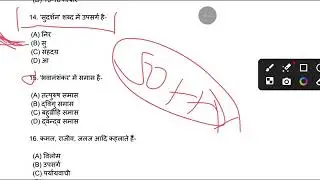 (D) 10-10 ...
14. 'सुदर्शन' शब्द में उपसर्ग है-
(A) निर
(B) सु
(C) सहदय
(D) आ
15. 'भवानीशंकर' में समास है-
(A) तत्पुरुष समास
(B) द्विगु समास
(C) बहुव्रीहि समास
(D) द्वन्द्व समास
16. कमल, राजीव, जलज आदि कहलाते हैं-
(A) विलोम
(B) उपसर्ग
(C) पर्यायवाची